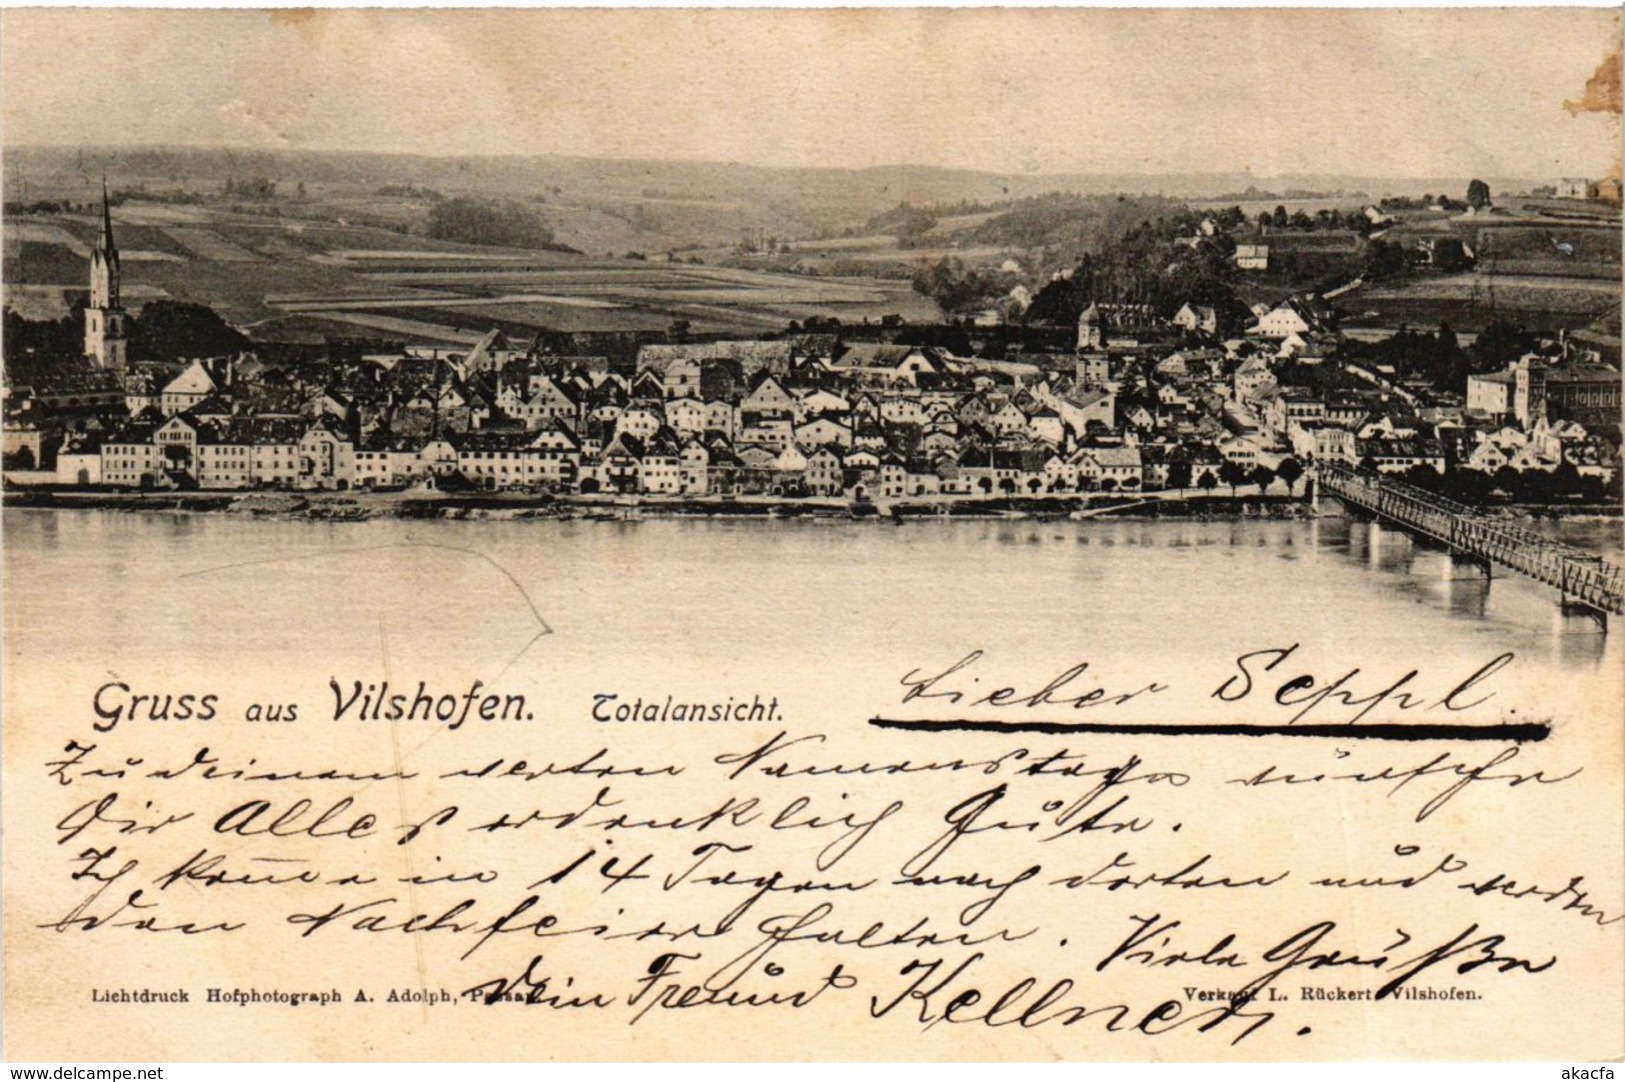 Gruss aus Vilshofen. Totalansicht.
Lieber Seppl.
Zu deinem werten Namenstage wünsche
Dir Alles erdenklich Gute.
Ich kom̅e in 14 Tagen nach dorten und werden
den Nachfeier halten. Viele Grüße
Dein Freund Kellner.
Lichtdruck Hofphotograph A. Adolph, Passau
Verkauf L. Rückert Vilshofen.
delcampe.net
akacfa